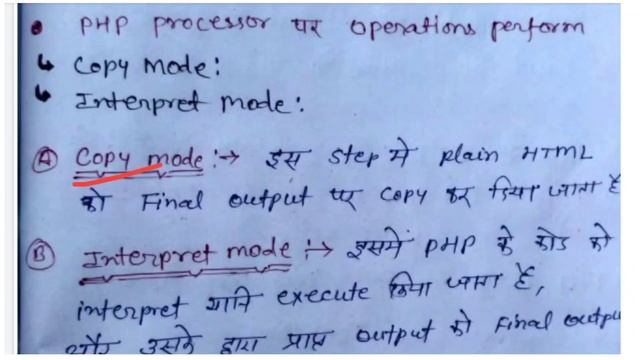 • PHP processor पर operations perform
↳ Copy Mode:
↳ Interpret mode:
Ⓐ Copy mode :→ इस step मे plain HTML
को Final output पर copy कर दिया जाता है
Ⓑ Interpret mode :→ इसमें PHP के कोड को
interpret यानि execute किया जाता है,
और उसके द्वारा प्राप्त output को Final outpu